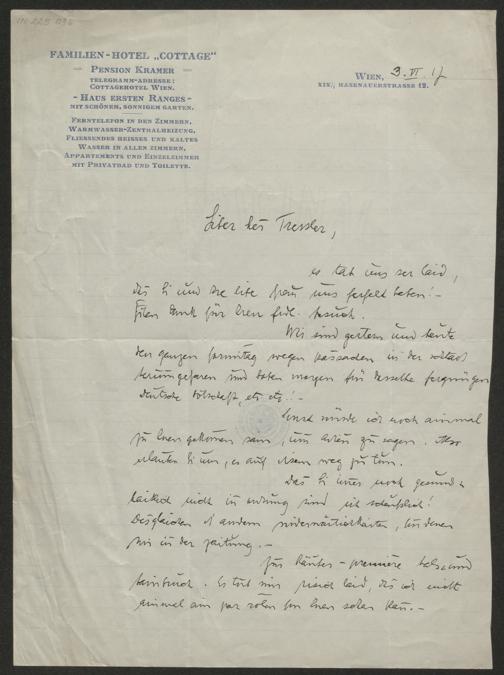 FAMILIEN-HOTEL „COTTAGE"
PENSION KRAMER
TELEGRAMM-ADRESSE:
COTTAGEHOTEL WIEN.
- HAUS ERSTEN RANGES -
MIT SCHÖNEM, SONNIGEM GARTEN.
FERNTELEFON IN DEN ZIMMERN,
WARMWASSER-ZENTRALHEIZUNG,
FLIESSENDES HEISSES UND KALTES
WASSER IN ALLEN ZIMMERN,
APPARTEMENTS UND EINZELZIMMER
MIT PRIVATBAD UND TOILETTE.
WIEN, 3. VI.
XIX/, HASENAUERSTRASSE 12.
Liber her Tressler,
es tat uns ser laid,
das si und ire libe frau uns ferfelt haben! -
Filen dank für iren besuch.
Wir sind gestern und heute
den ganzen formittag wegen in der
herumgefaren und haben morgen für desselbe fergnügen
deutsche botschaft, etc. etc.! -
Sonst würde ich noch ainmal
zu inen gekomen sain, um zu sagen. Also
erlauben si mir, es auf disem weg zu tun.
Das si imer noch gesund-
haitlich nicht in ordnung sind, ist scheusslich!
Desglaichen di andern widerwärtichkaiten, fon denen
wir in der zaitung. -
Zur première hals und
bainbruch. Es tut mir laid, das ich nicht
ainmal ain par rollen fon inen sehen kan. -